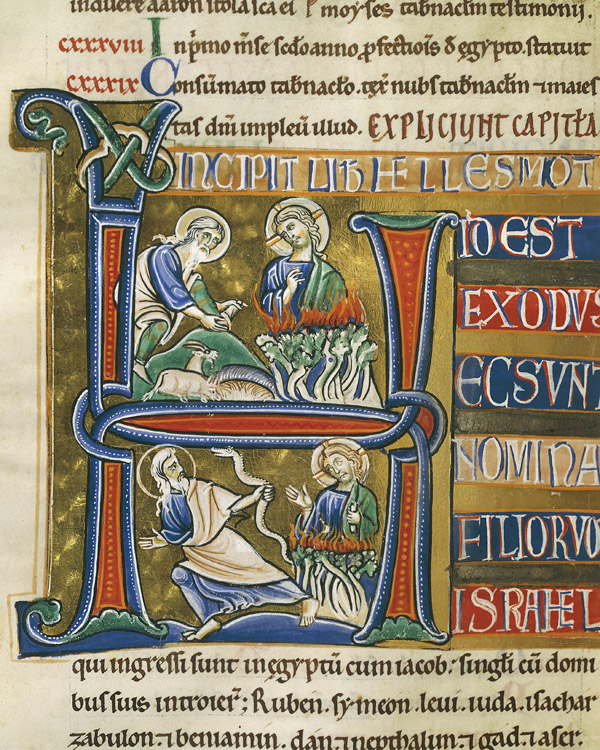 induere aaron stola sca et moyses tabnaclm testimonii.
cxxxviii In pimo mse scdo anno pfectiois d egypto. statuit
cxxxix Consumato tabnaclo. texit nubs tabnaclm ⁊ maies
tas dni impleuit illud. EXPLICIUNT CAPITLA
INCIPIT LIB HELLESMOT
ID EST
EXODUS
ECSUNT
NOMINA
FILIORUO
ISRAHEL
qui ingressi sunt in egyptu cum iacob. singli cu domi
bus suis introier; Ruben. symeon. leui. iuda. isachar
zabulon. ⁊ beniamin. dan. ⁊ nepthalim. ⁊ gad. ⁊ aser.